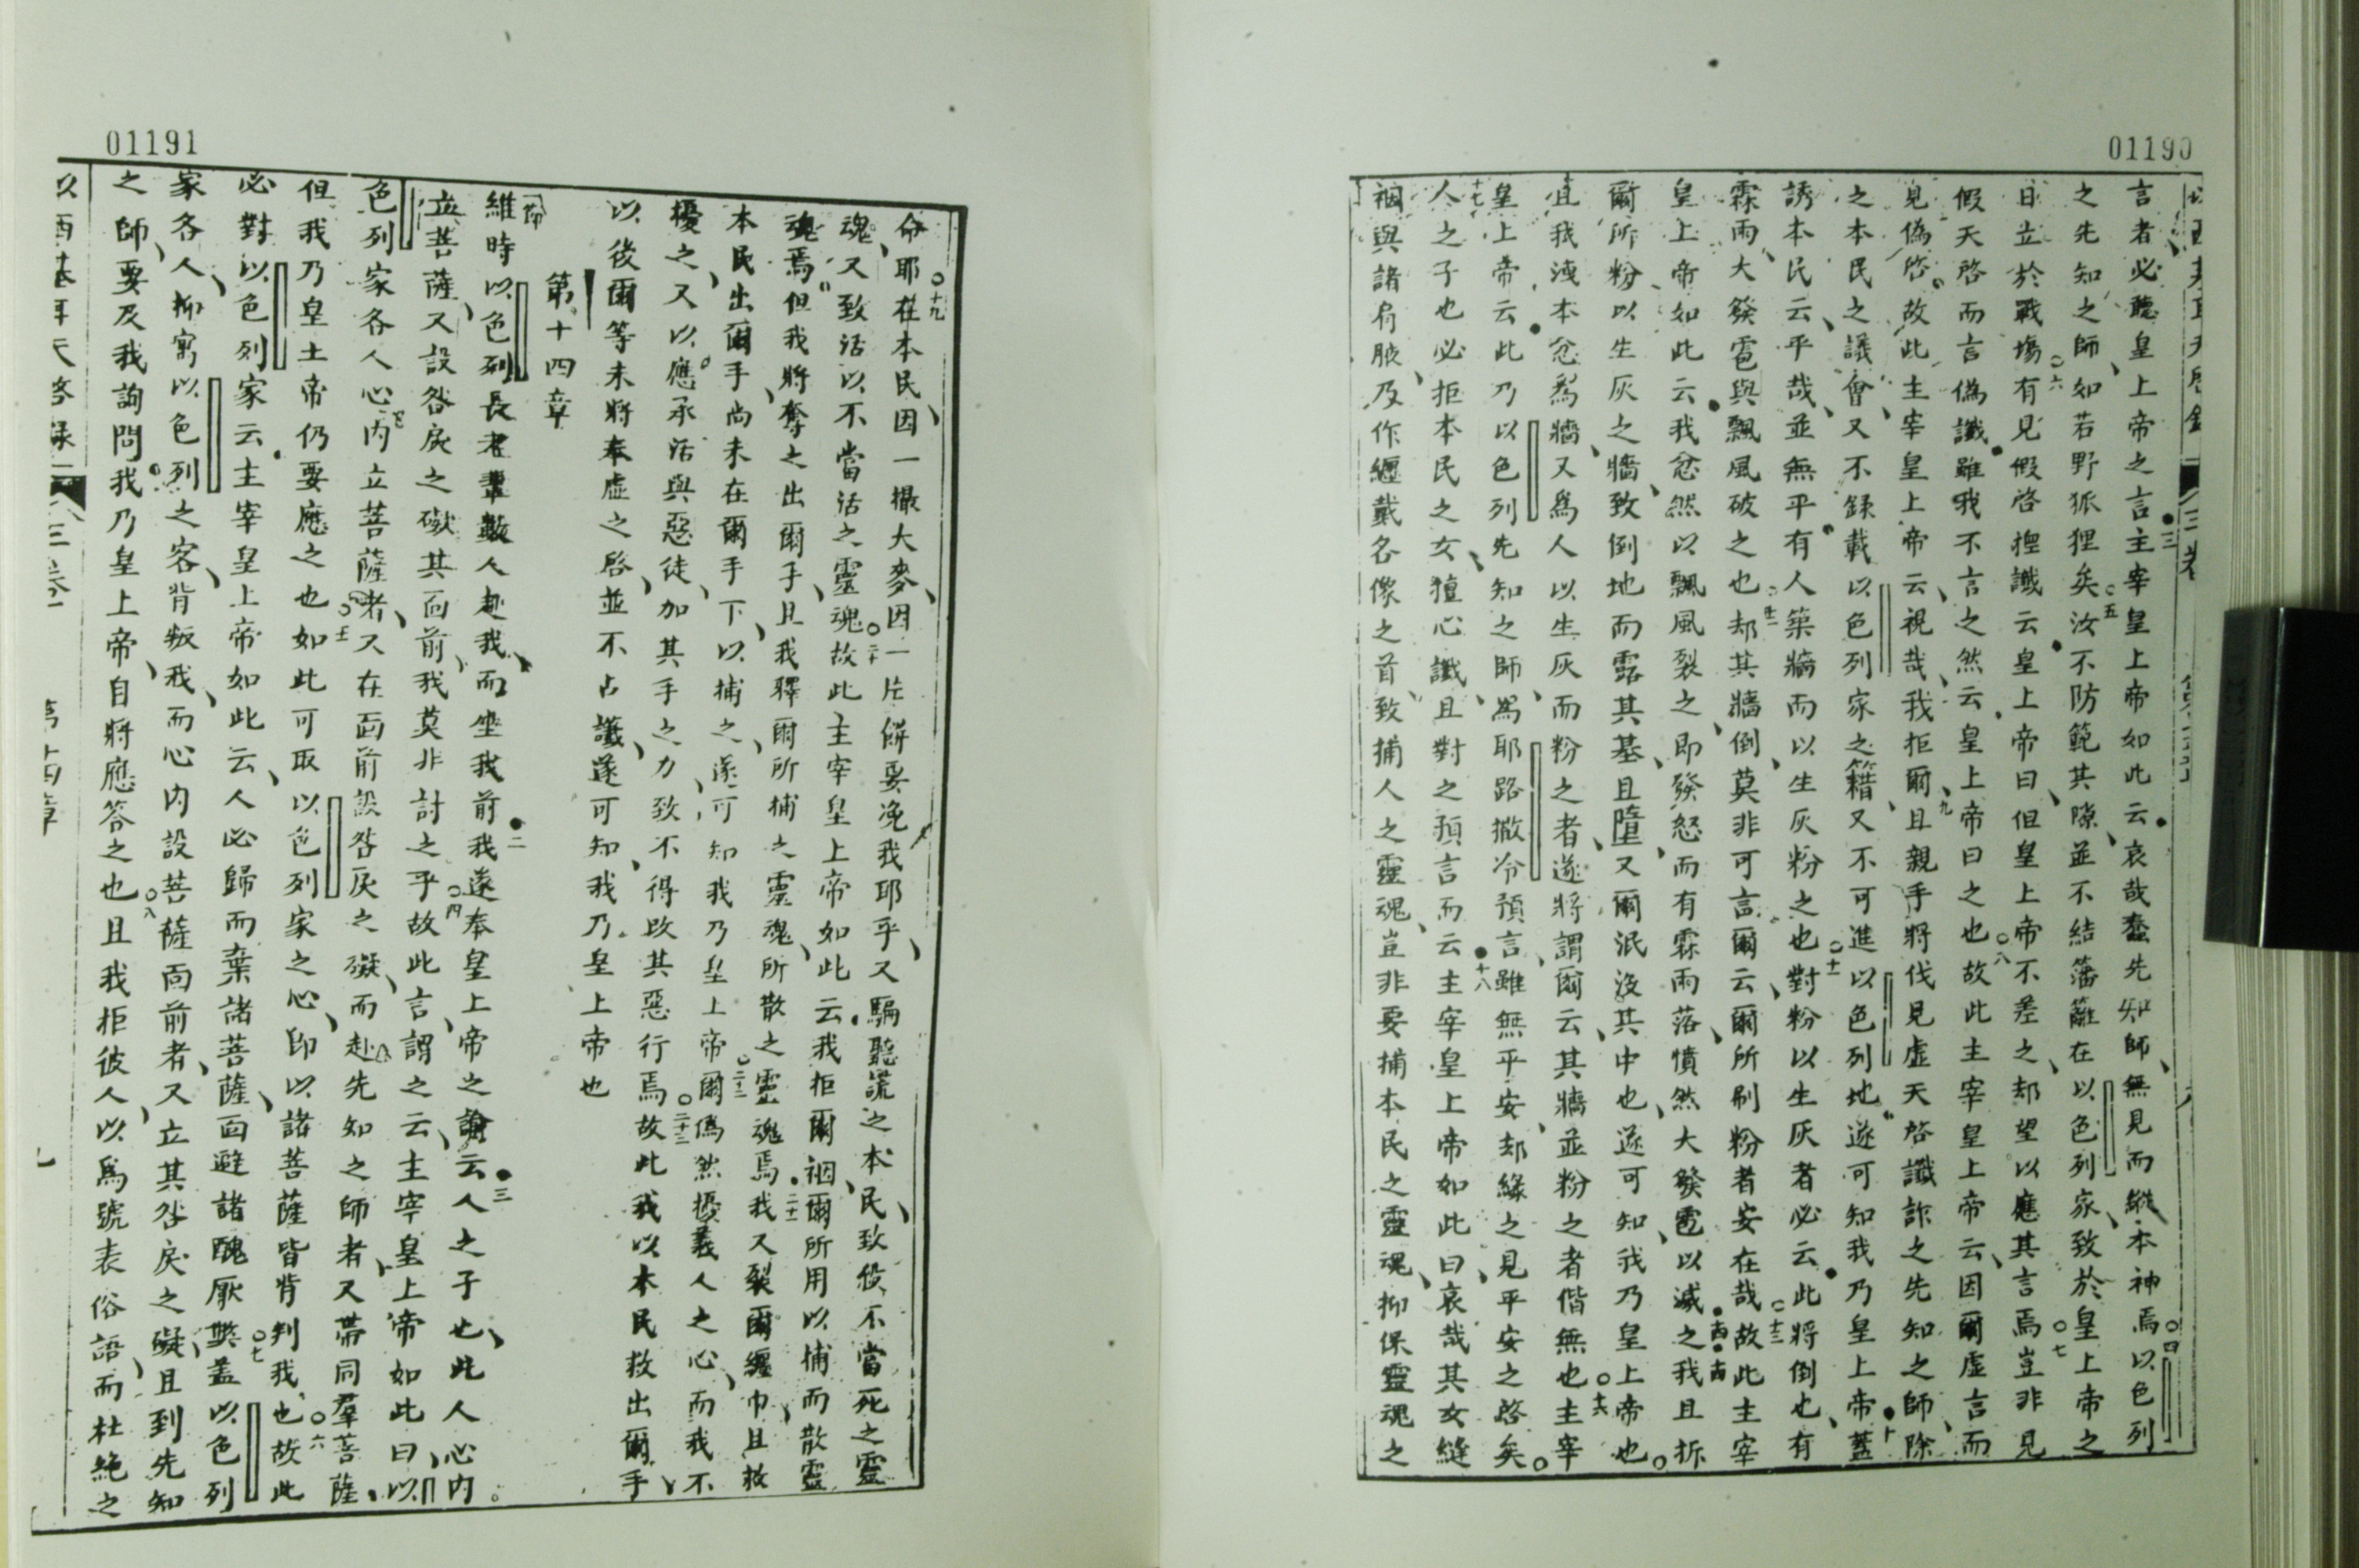 01190
言者必聽皇上帝之言主宰皇上帝如此云哀哉蠢先知師無見而縱本神焉以色列
之先知之師如若野狐狸矣汝不防範其隙並不結籓籬在以色列家致於皇上帝之
日立於戰塲有見假啓揑讖云皇上帝曰但皇上帝不差之却望以應其言焉豈非見
假天啓而言偽讖雖我不言之然云皇上帝曰之也故此主宰皇上帝云因爾虛言而
見偽啓故此主宰皇上帝云視哉我拒爾且親手將伐見虛天啓讖詐之先知之師除
之本民之議會又不錄載以色列家之籍又不可進以色列地遂可知我乃皇上帝蓋
誘本民云平哉並無平有人築牆而以生灰粉之也對粉以生灰者必云此將倒也有
霖雨大發雹與飄風破之也却其牆倒莫非可言爾云爾所刷粉者安在哉故此主宰
皇上帝如此云我忿然以飄風裂之即發怒而有霖雨落憤然大發雹以滅之我且拆
爾所粉以生灰之牆致倒地而露其基且墮又爾泯沒其中也遂可知我乃皇上帝也
且我洩本忿爲牆又爲人以生灰而粉之者遂將謂爾云其牆並粉之者偕無也主宰
皇上帝云此乃以色列先知之師爲耶路撒冷預言雖無平安却緣之見平安之啓矣
人之子也必拒本民之女擅心讖且對之預言而云主宰皇上帝如此曰哀哉其女縫
裀與諸肩腋及作纏戴各像之首致捕人之靈魂豈非要捕本民之靈魂抑保靈魂之
01191
命耶在本民因一撮大麥因一片餅要浼我耶乎又騙聽謊之本民致伇不當死之靈
魂又致活以不當活之靈魂故此主宰皇上帝如此云我拒爾裀爾所用以捕而散靈
魂焉但我將奪之出爾手且我釋爾所捕之靈魂所散之靈魂焉我又裂爾纏巾且救
本民出爾手尚未在爾手下以捕之遂可知我乃皇上帝爾偽然擾義人之心而我不
擾之又以應承活與惡徒加其手之力致不得改其惡行焉故此我以本民救出爾手
以後爾等未將奉虛之啓並不占讖遂可知我乃皇上帝也
第十四章
維時以色列長者輩數人赴我而坐我前我遂奉皇上帝之諭云人之子也此人心內
立菩薩又設咎戾之礙其面前我莫非討之乎故此言謂之云主宰皇上帝如此曰以
色列家各人心內立菩薩者又在面前設咎戾之礙而赴先知之師者又帶同羣菩薩
但我乃皇上帝仍要應之也如此可取以色列家之心印以諸菩薩皆背判我也故此
必對以色列家云主宰皇上帝如此云人必歸而棄諸菩薩面避諸醜厭獘蓋以色列
家各人抑寓以色列之客背叛我而心內設菩薩面前者又立其咎戾之礙且到先知
之師要及我詢問我乃皇上帝自將應答之也且我拒彼人以爲號表俗語而杜絶之